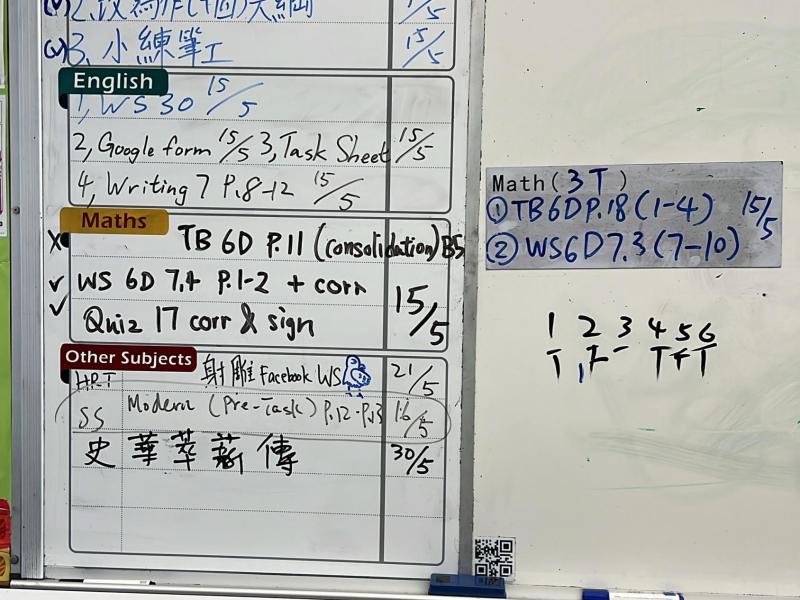 小練筆工 15/5
English
1, WS 30 15/5
2, Google form 15/5 3, Task Sheet 15/5
4, Writing 7 P.8-12 15/5
Maths
TB 6D P.11 (consolidation) B5
WS 6D 7.4 P.1-2 + corr
Quiz 17 corr & sign 15/5
Other Subjects
HRT 射雕 Facebook WS 21/5
SS Modern (Pre-Task) P.12-P.13 16/5
史 華萃薪傳 30/5
Math (3T)
① TB6D P.18 (1-4) 15/5
② WS6D 7.3 (7-10)
1 2 3 4 5 6